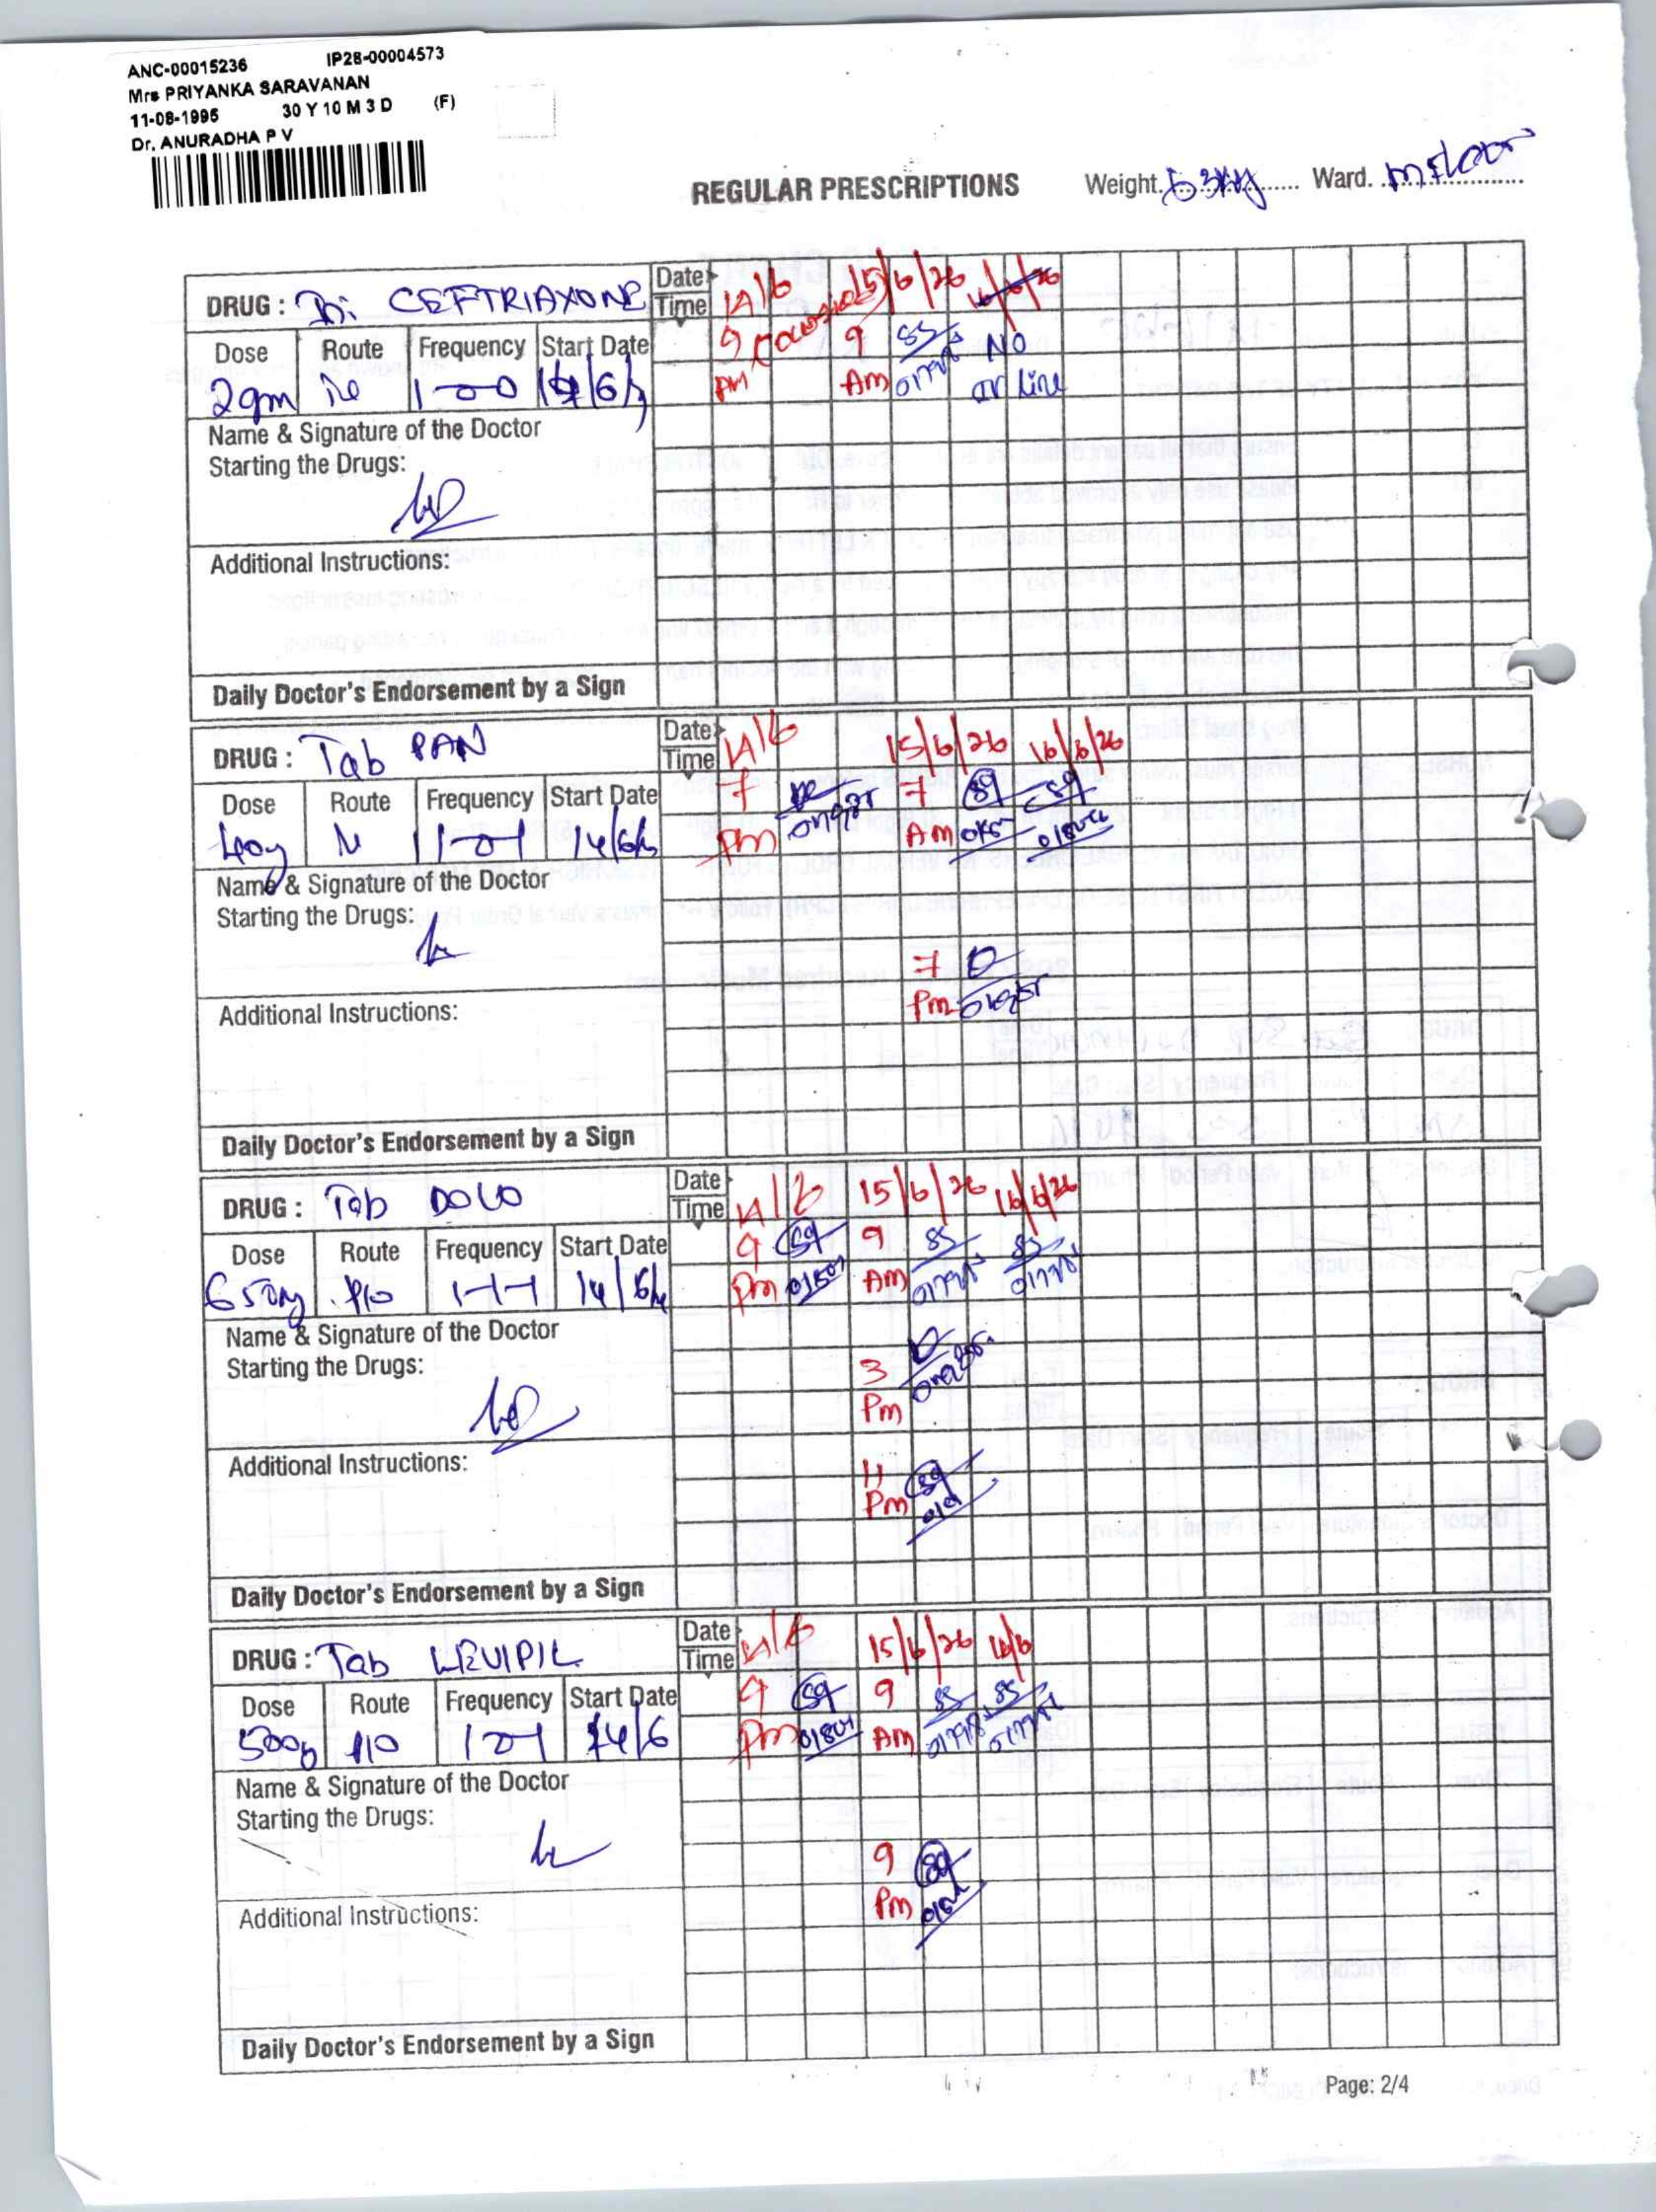 ANC-00015236 IP28-00004573
Mrs PRIYANKA SARAVANAN
11-08-1995 30 Y 10 M 3 D (F)
Dr. ANURADHA P V
REGULAR PRESCRIPTIONS Weight. 53kg Ward.
Date 14/6 15/6/26 16/6/26
DRUG : CEFTRIAXONE Time
Dose Route Frequency Start Date 9 PM 9 Am SS 01798 NO IV Line
2gm 1-0-0 14/6/
Name & Signature of the Doctor
Starting the Drugs:
Additional Instructions:
Daily Doctor's Endorsement by a Sign
Date 14/6 15/6/26 16/6/26
DRUG : Tab PAN Time
Dose Route Frequency Start Date 7 Pm 7 Am
40mg 1-0-1 14/6/
Name & Signature of the Doctor
Starting the Drugs:
7 Pm
Additional Instructions:
Daily Doctor's Endorsement by a Sign
Date 14/6 15/6/26 16/6/26
DRUG : Tab DOLO Time
Dose Route Frequency Start Date 9 Pm 9 Am SS SS
650mg P/O 1-1-1 14/6/
Name & Signature of the Doctor
Starting the Drugs:
3 Pm
Additional Instructions:
11 Pm
Daily Doctor's Endorsement by a Sign
Date 14/6 15/6/26 16/6
DRUG : Tab LEVIPIL Time
Dose Route Frequency Start Date 9 Pm 9 Am SS SS
500mg P/O 1-0-1 14/6
Name & Signature of the Doctor
Starting the Drugs:
9 Pm
Additional Instructions:
Daily Doctor's Endorsement by a Sign
Page: 2/4